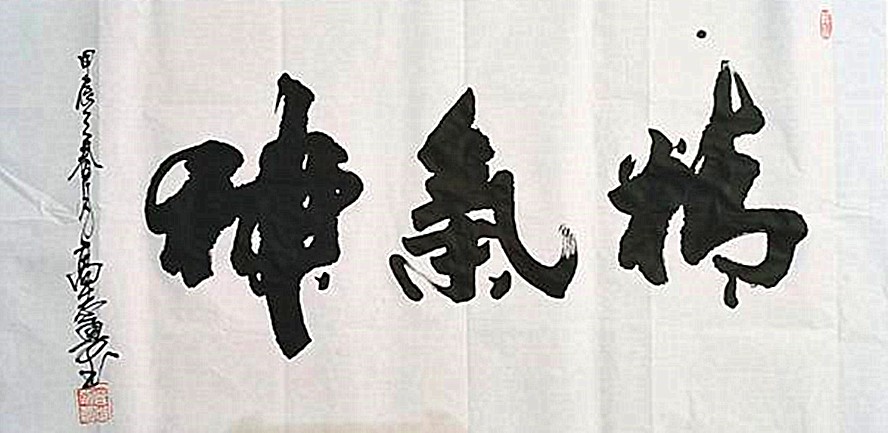 精氣神
甲辰之春月高雲書